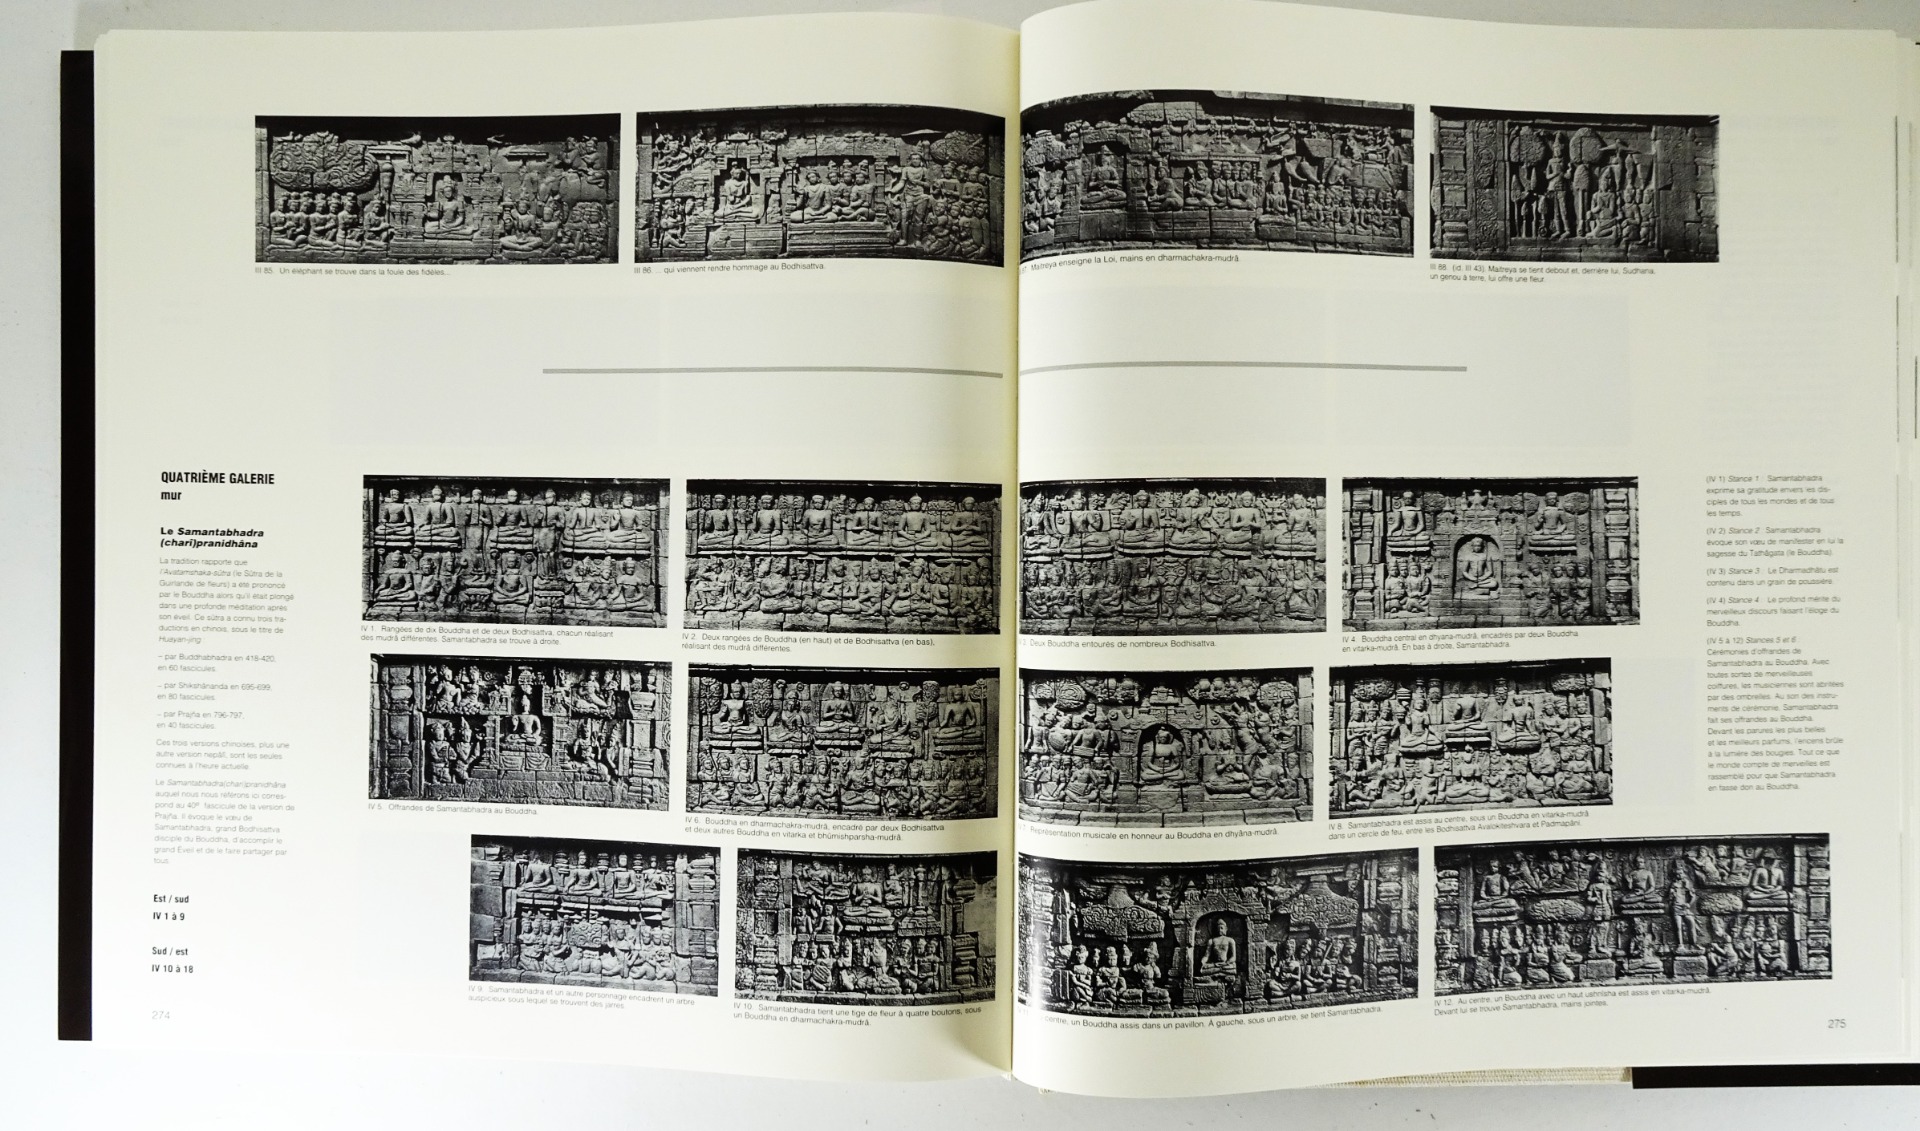 III 85. Un éléphant se trouve dans la foule des fidèles...
III 86. ... qui viennent rendre hommage au Bodhisattva.
QUATRIÈME GALERIE
mur
Le Samantabhadra
(chari)pranidhâna
La tradition rapporte que
l'Avatamshaka-sûtra (le Sûtra de la
Guirlande de fleurs) a été prononcé
par le Bouddha alors qu'il était plongé
dans une profonde méditation après
son éveil. Ce sûtra a connu trois tra-
ductions en chinois, sous le titre de
Huayan-jing
– par Buddhabhadra en 418-420,
en 60 fascicules.
– par Shikshânanda en 695-699,
en 80 fascicules.
– par Prajña en 796-797,
en 40 fascicules.
Ces trois versions chinoises, plus une
autre version népâli, sont les seules
connues à l'heure actuelle.
Le Samantabhadra(chari)pranidhâna
auquel nous nous référons ici corres-
pond au 40e fascicule de la version de
Prajña. Il évoque le vœu de
Samantabhadra, grand Bodhisattva
disciple du Bouddha, d'accomplir le
grand Éveil et de le faire partager par
tous.
Est / sud
IV 1 à 9
Sud / est
IV 10 à 18
274
IV 1. Rangées de dix Bouddha et de deux Bodhisattva, chacun réalisant
des mudrâ différentes. Samantabhadra se trouve à droite.
IV 2. Deux rangées de Bouddha (en haut) et de Bodhisattva (en bas),
réalisant des mudrâ différentes.
IV 5. Offrandes de Samantabhadra au Bouddha.
IV 6. Bouddha en dharmachakra-mudrâ, encadré par deux Bodhisattva
et deux autres Bouddha en vitarka et bhûmishparsha-mudrâ.
IV 9. Samantabhadra et un autre personnage encadrent un arbre
auspicieux sous lequel se trouvent des jarres.
IV 10. Samantabhadra tient une tige de fleur à quatre boutons, sous
un Bouddha en dharmachakra-mudrâ.
Maitreya enseigne la Loi, mains en dharmachakra-mudrâ.
III 88. (id. III 43). Maitreya se tient debout et, derrière lui, Sudhana,
un genou à terre, lui offre une fleur.
3. Deux Bouddha entourés de nombreux Bodhisattva.
IV 4. Bouddha central en dhyana-mudrâ, encadrés par deux Bouddha
en vitarka-mudrâ. En bas à droite, Samantabhadra.
Représentation musicale en honneur au Bouddha en dhyâna-mudrâ.
IV 8. Samantabhadra est assis au centre, sous un Bouddha en vitarka-mudrâ
dans un cercle de feu, entre les Bodhisattva Avalokiteshvara et Padmapâni.
centre, un Bouddha assis dans un pavillon. À gauche, sous un arbre, se tient Samantabhadra.
IV 12. Au centre, un Bouddha avec un haut ushnîsha est assis en vitarka-mudrâ.
Devant lui se trouve Samantabhadra, mains jointes.
(IV 1) Stance 1 : Samantabhadra
exprime sa gratitude envers les dis-
ciples de tous les mondes et de tous
les temps.
(IV 2) Stance 2 : Samantabhadra
évoque son vœu de manifester en lui la
sagesse du Tathâgata (le Bouddha).
(IV 3) Stance 3 : Le Dharmadhâtu est
contenu dans un grain de poussière.
(IV 4) Stance 4 : Le profond mérite du
merveilleux discours faisant l'éloge du
Bouddha.
(IV 5 à 12) Stances 5 et 6 :
Cérémonies d'offrandes de
Samantabhadra au Bouddha. Avec
toutes sortes de merveilleuses
coiffures, les musiciennes sont abritées
par des ombrelles. Au son des instru-
ments de cérémonie, Samantabhadra
fait ses offrandes au Bouddha.
Devant les parures les plus belles
et les meilleurs parfums, l'encens brûle
à la lumière des bougies. Tout ce que
le monde compte de merveilles est
rassemblé pour que Samantabhadra
en fasse don au Bouddha.
275